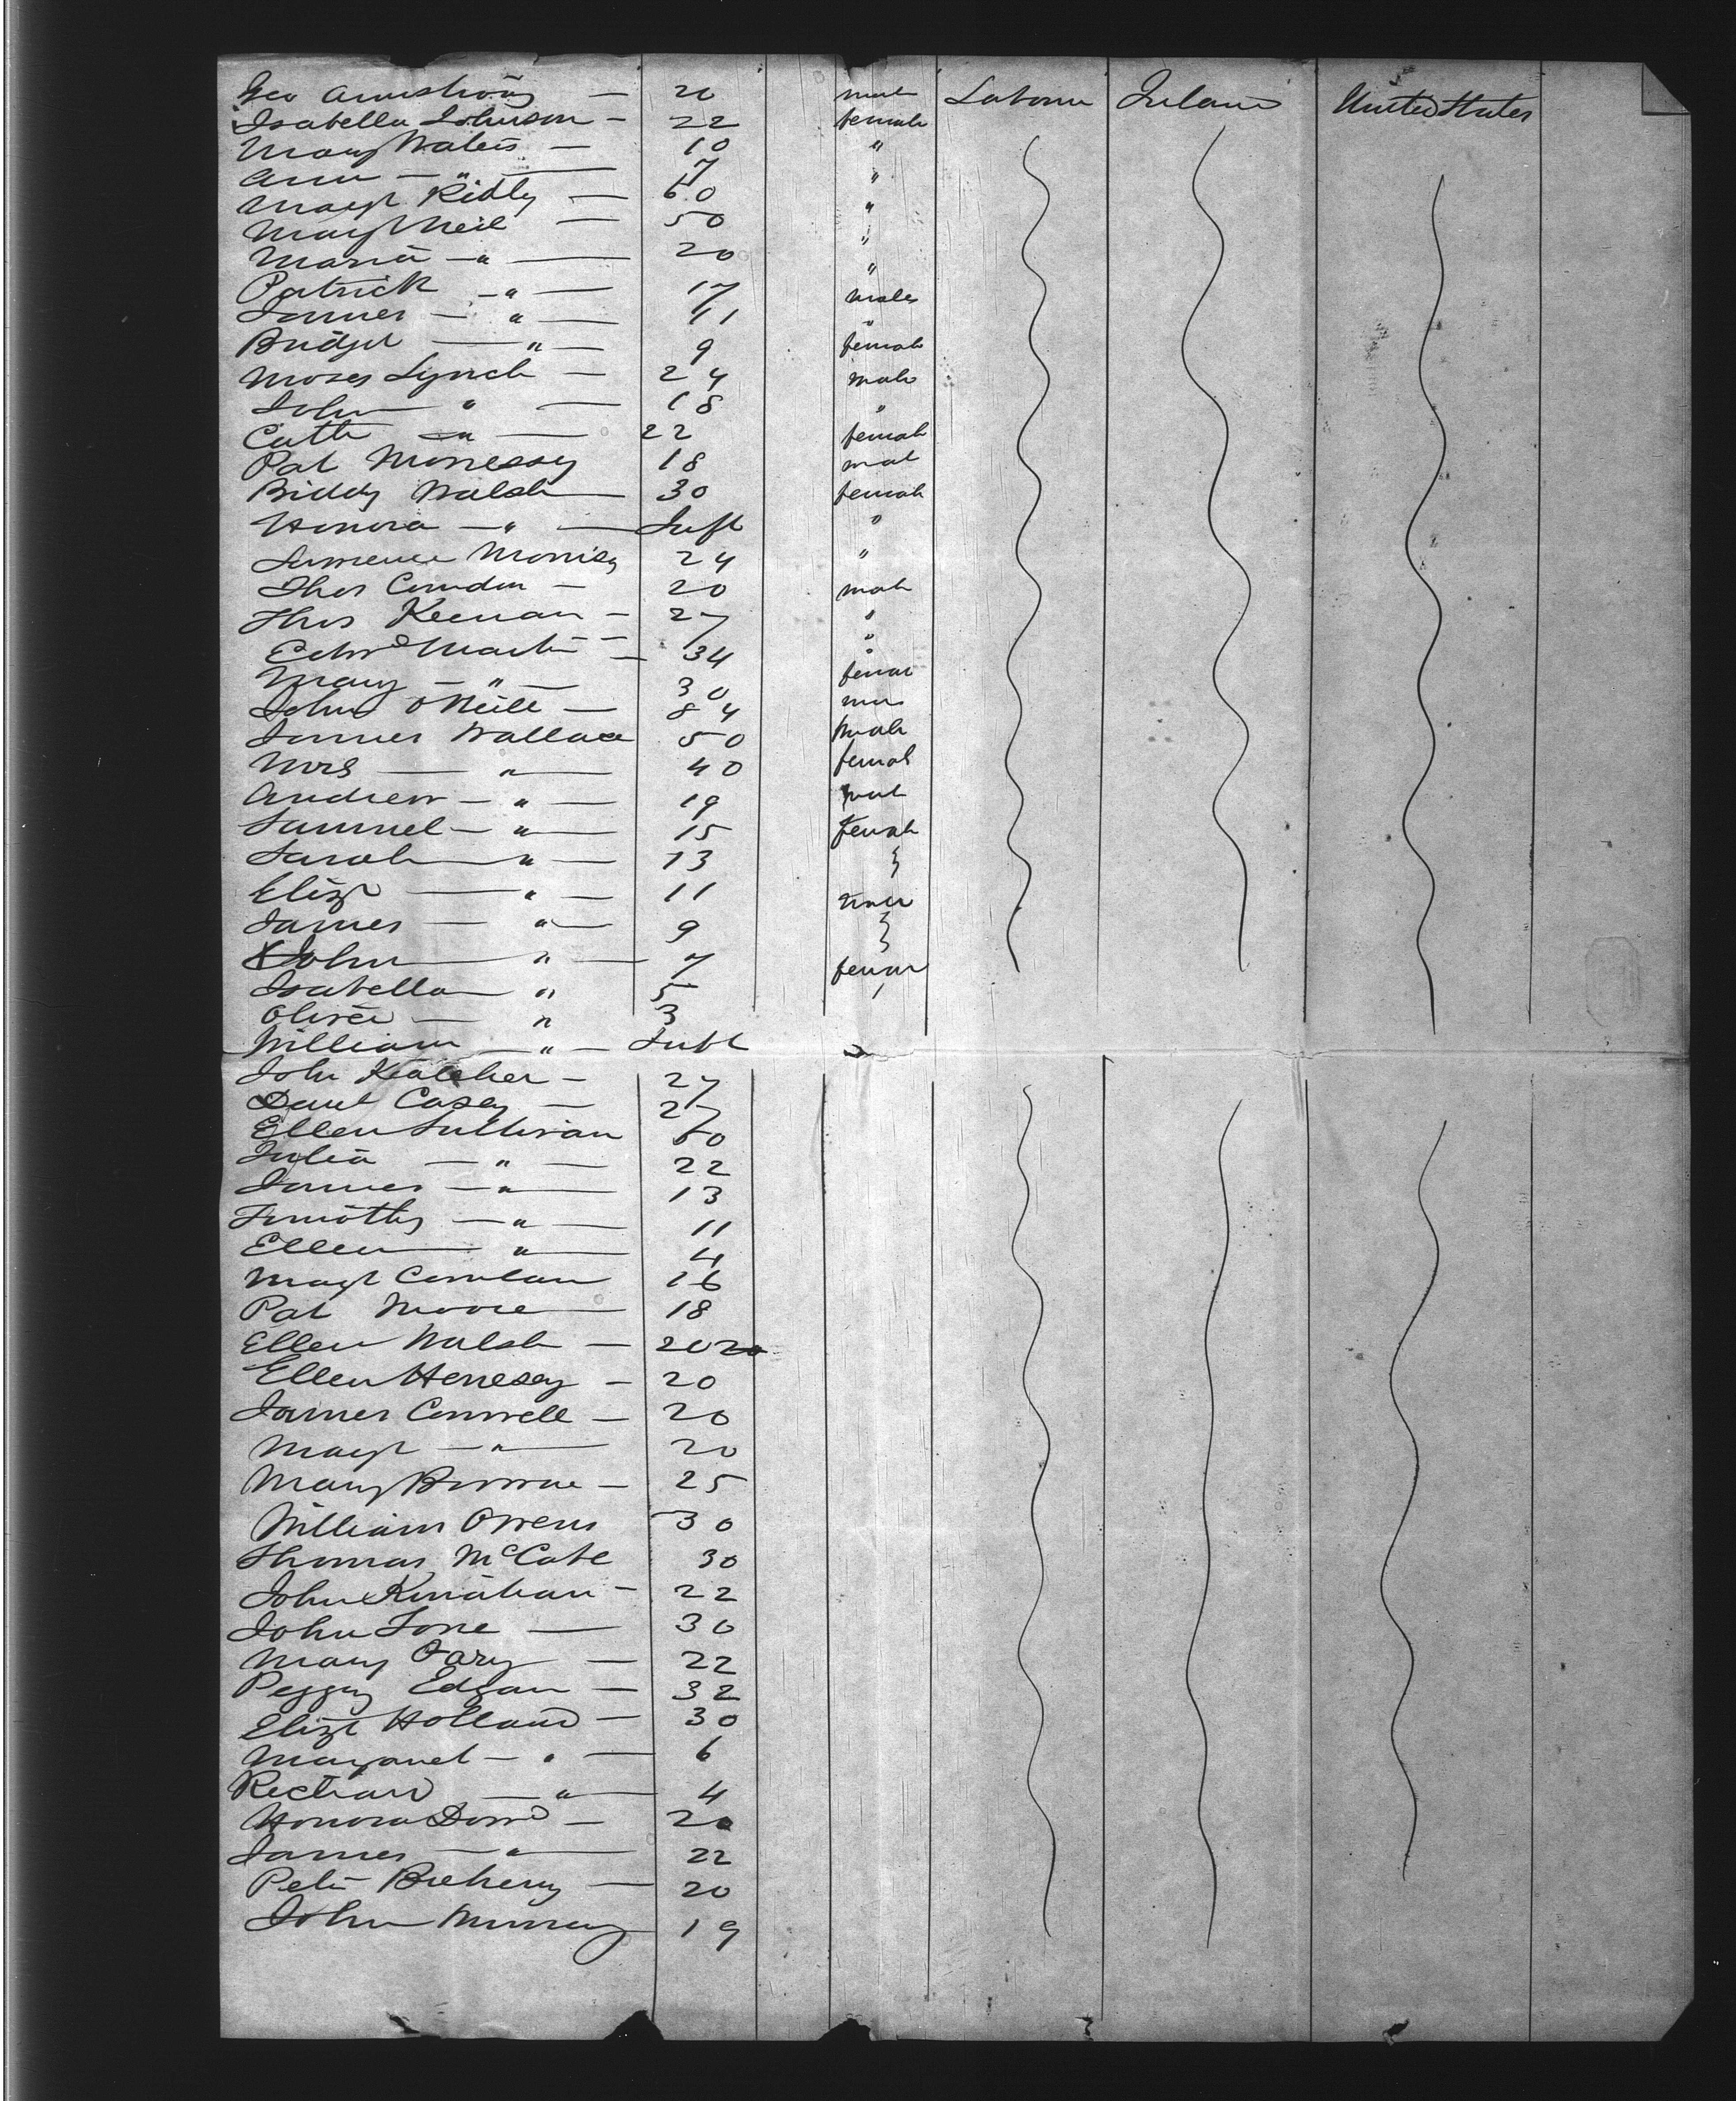 Geo Armstrong — 20 male Laborer Ireland United States
Isabella Johnson — 22 female
Mary Waters — 10 "
Ann — " — 7 "
Margt Ridly — 60 "
Mary Neil — 50 "
Maria — " — 20 "
Patrick — " — 17 males
James — " — 11 "
Bridget — " — 9 female
Moses Lynch — 24 male
John " — 18 "
Cath — " — 22 female
Pat Morressy 18 male
Biddy Walsh — 30 female
Honora — " — Inft "
Lawrence Morrisy 24 "
Thos Condon — 20 male
Thos Keenan — 27 "
Edwd Martin — 34 "
Mary — " — 30 female
John O'Neill — 84
James Wallace 50 male
Mrs — " — 40 female
Andrew — " — 19 male
Samuel — " — 15 female
Sarah — " — 13
Eliza — " — 11
James — " — 9
John — " — 7 female
Isabella — " 5
Oliver — " 3
William — " — Inft
John Kealeher — 27
Danl Casey — 27
Ellen Sullivan 60
Julia — " — 22
James — " — 13
Timothy — " — 11
Ellen — " — 4
Margt 16
Pat Moore — 18
Ellen Walsh — 20 20
Ellen Henesey — 20
James Connell — 20
Margt — " — 20
Mary Browne — 25
William Owens 30
Thomas McCabe 30
John Kinahan — 22
John Tone — 30
Mary — 22
Peggy Edgan — 32
Eliza Holland — 30
Margaret — " — 6
Richard — " — 4
Honora Dowd — 20
James — " — 22
Peter Breheny — 20
John Murray 19